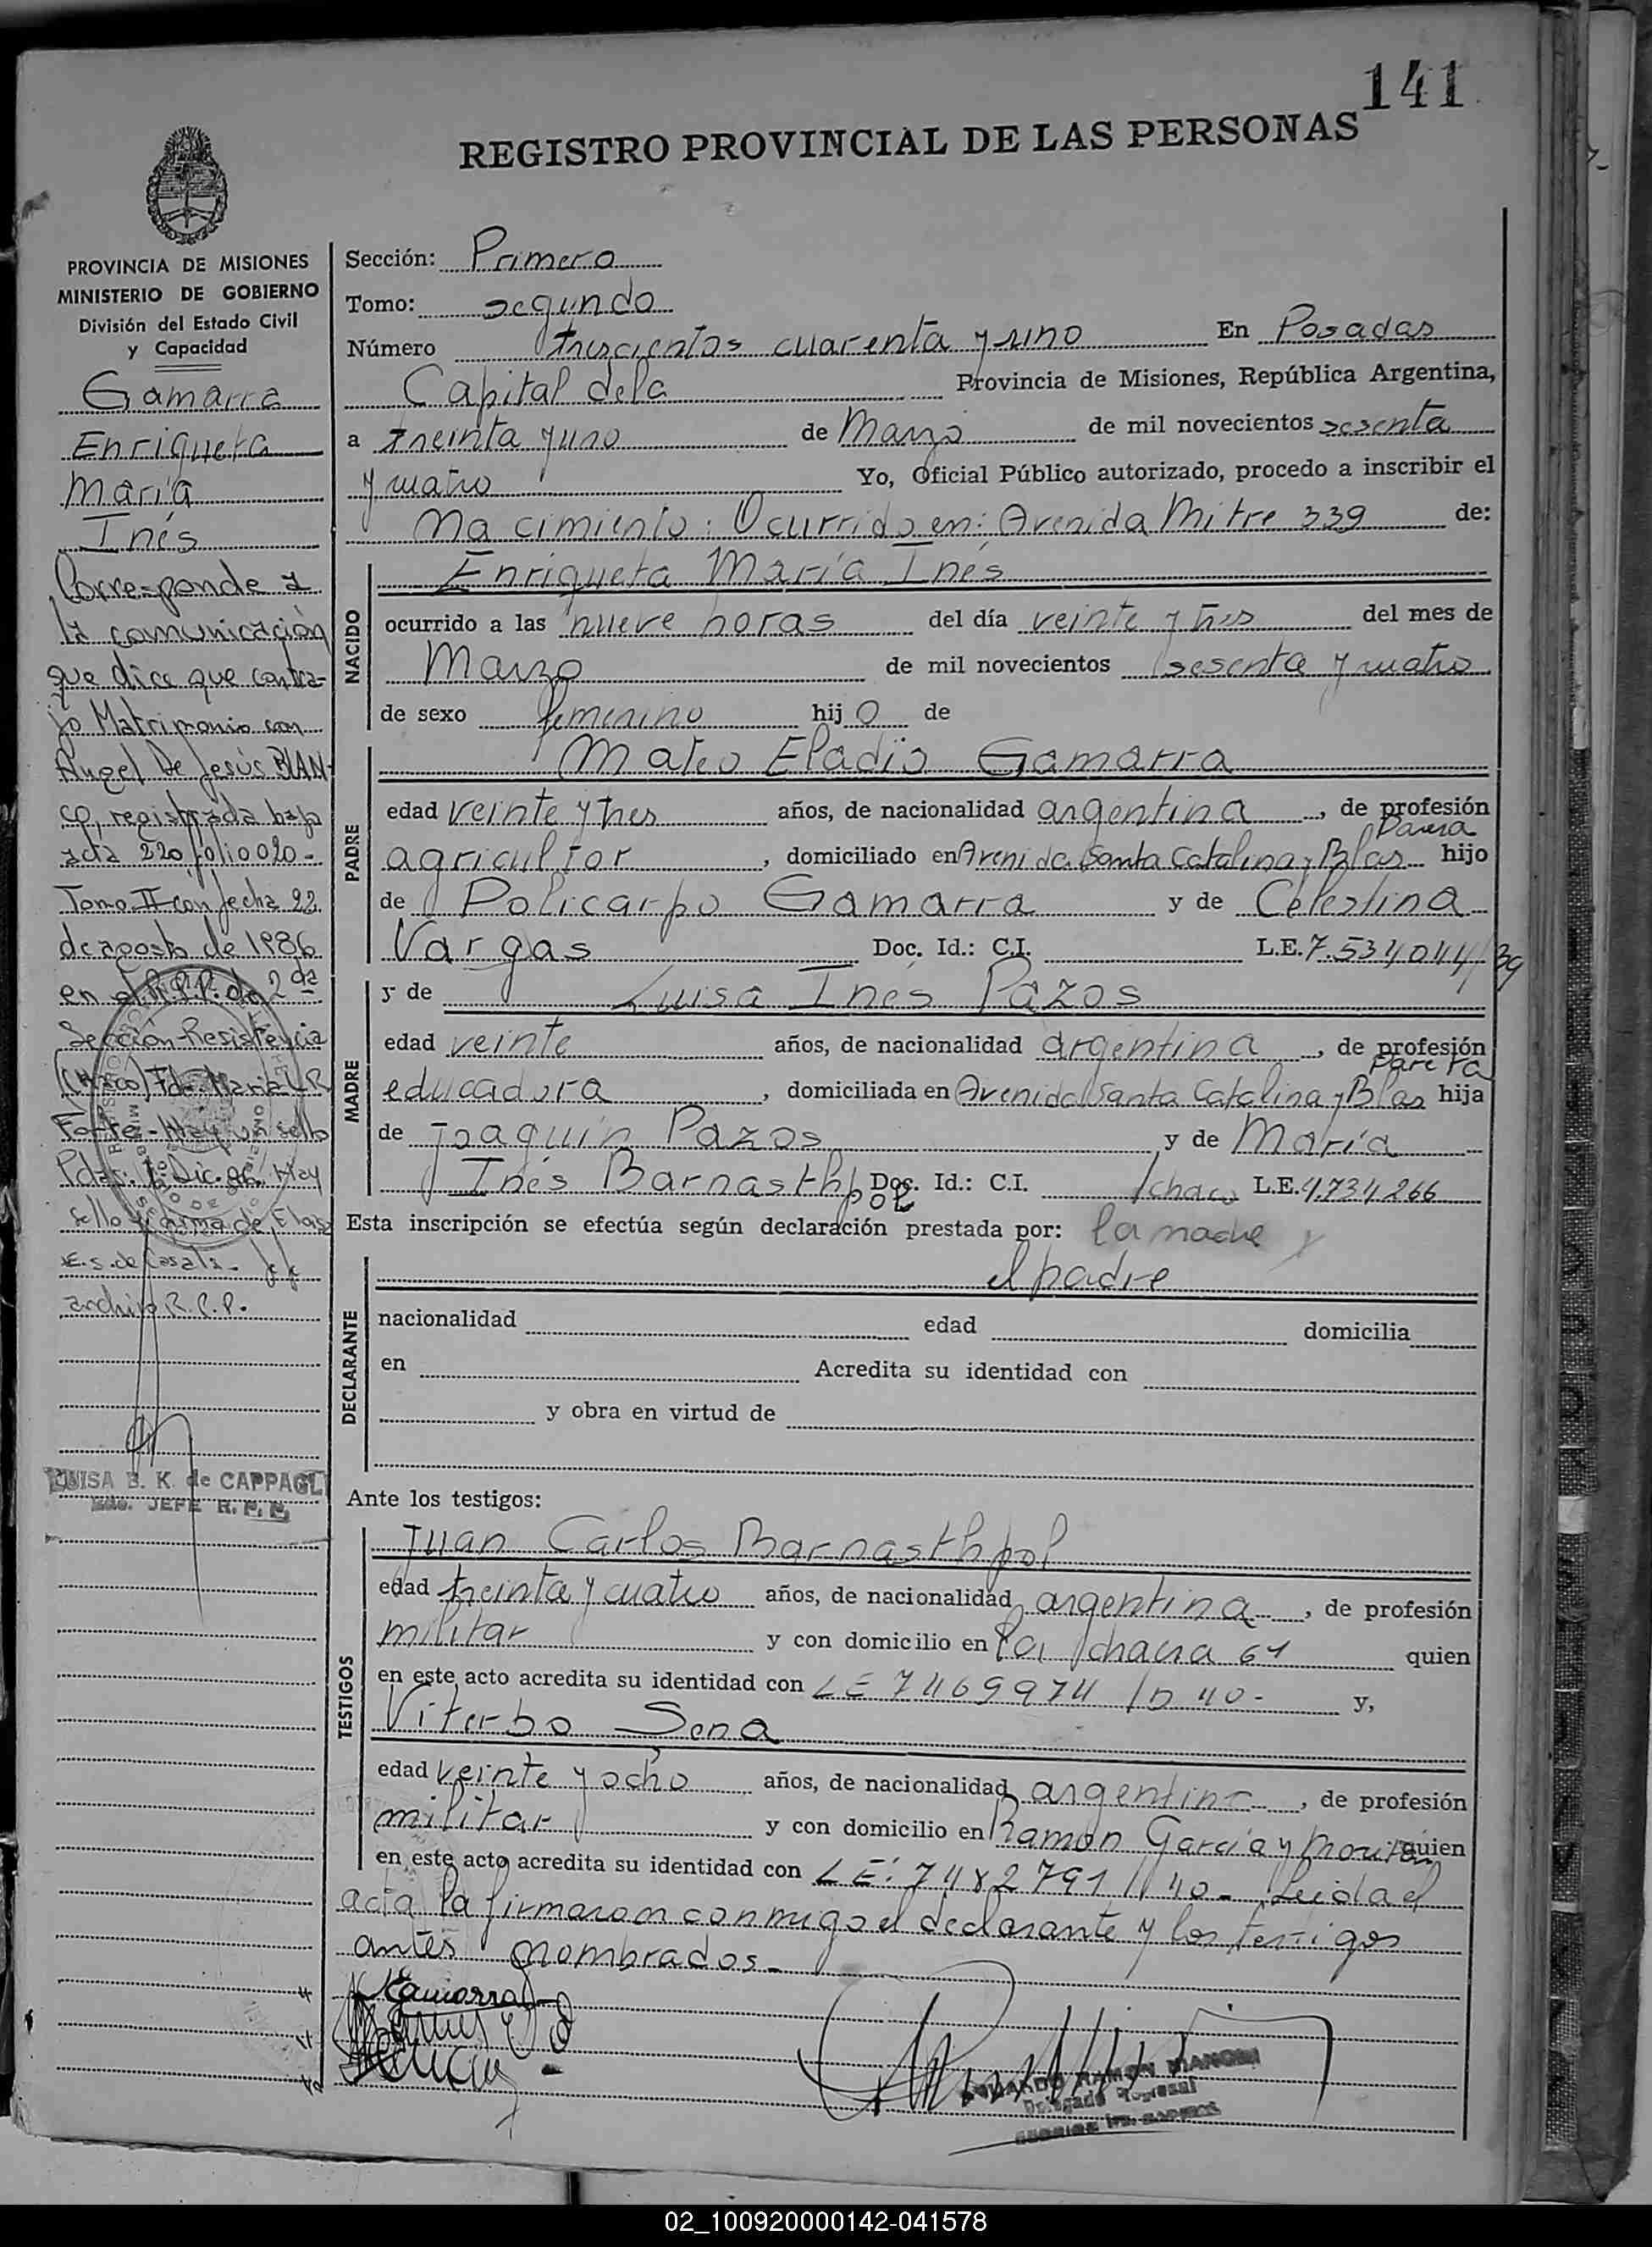 141
REGISTRO PROVINCIAL DE LAS PERSONAS
PROVINCIA DE MISIONES
MINISTERIO DE GOBIERNO
División del Estado Civil
y Capacidad
Gamarra
Enriqueta
María
Inés
Corresponde a
la comunicación
que dice que contra-
jo Matrimonio con
Angel De Jesús BLAN-
CO, registrada bajo
acta 220 folio 020-
Tomo II con fecha 22
de agosto de 1986
en el R.P.P. de 2da
Sección-Resistencia
(Chaco) Fdo. María R
Forte- Hay un sello
Pdas. 1 Dic. 86. Hay
sello y firma de Elas
E. S. de Casals.
archivo R.P.P.
LUISA B. K. de CAPPAGLI
JEFE R. P. P.
Sección: Primera
Tomo: segundo
Número trescientos cuarenta y uno En Posadas
Capital dela Provincia de Misiones, República Argentina,
a treinta y uno de Marzo de mil novecientos sesenta
y cuatro Yo, Oficial Público autorizado, procedo a inscribir el
Nacimiento: Ocurrido en: Avenida Mitre 339 de:
NACIDO
Enriqueta María Inés
ocurrido a las nueve horas del día veinte y tres del mes de
Marzo de mil novecientos sesenta y cuatro
de sexo femenino hij o de
PADRE
Mateo Eladio Gamarra
edad veinte y tres años, de nacionalidad argentina, de profesión
agricultor, domiciliado en Avenida Santa Catalina y Blas Parera hijo
de Policarpo Gamarra y de Celestina
Vargas Doc. Id.: C.I. L.E. 7.534044/39
MADRE
y de Luisa Inés Pazos
edad veinte años, de nacionalidad argentina, de profesión
educadora, domiciliada en Avenida Santa Catalina y Blas Parera hija
de Joaquín Pazos y de María
Inés Barnasthpol Doc. Id.: C.I. /chaco L.E. 4.734,266
Esta inscripción se efectúa según declaración prestada por: la madre y
el padre
DECLARANTE
nacionalidad edad domicilia
en Acredita su identidad con
y obra en virtud de
Ante los testigos:
TESTIGOS
Juan Carlos Barnasthpol
edad treinta y cuatro años, de nacionalidad argentina, de profesión
militar y con domicilio en chacra 61 quien
en este acto acredita su identidad con LE 7469974 /D 40- y,
Viterbo Sena
edad veinte y ocho años, de nacionalidad argentina, de profesión
militar y con domicilio en Ramón García y quien
en este acto acredita su identidad con LE: 7482791 / 40- Leída el
acta la firmaron conmigo el declarante y los testigos
antes nombrados-
RAMON MANGINI
Delegado
02_100920000142-041578